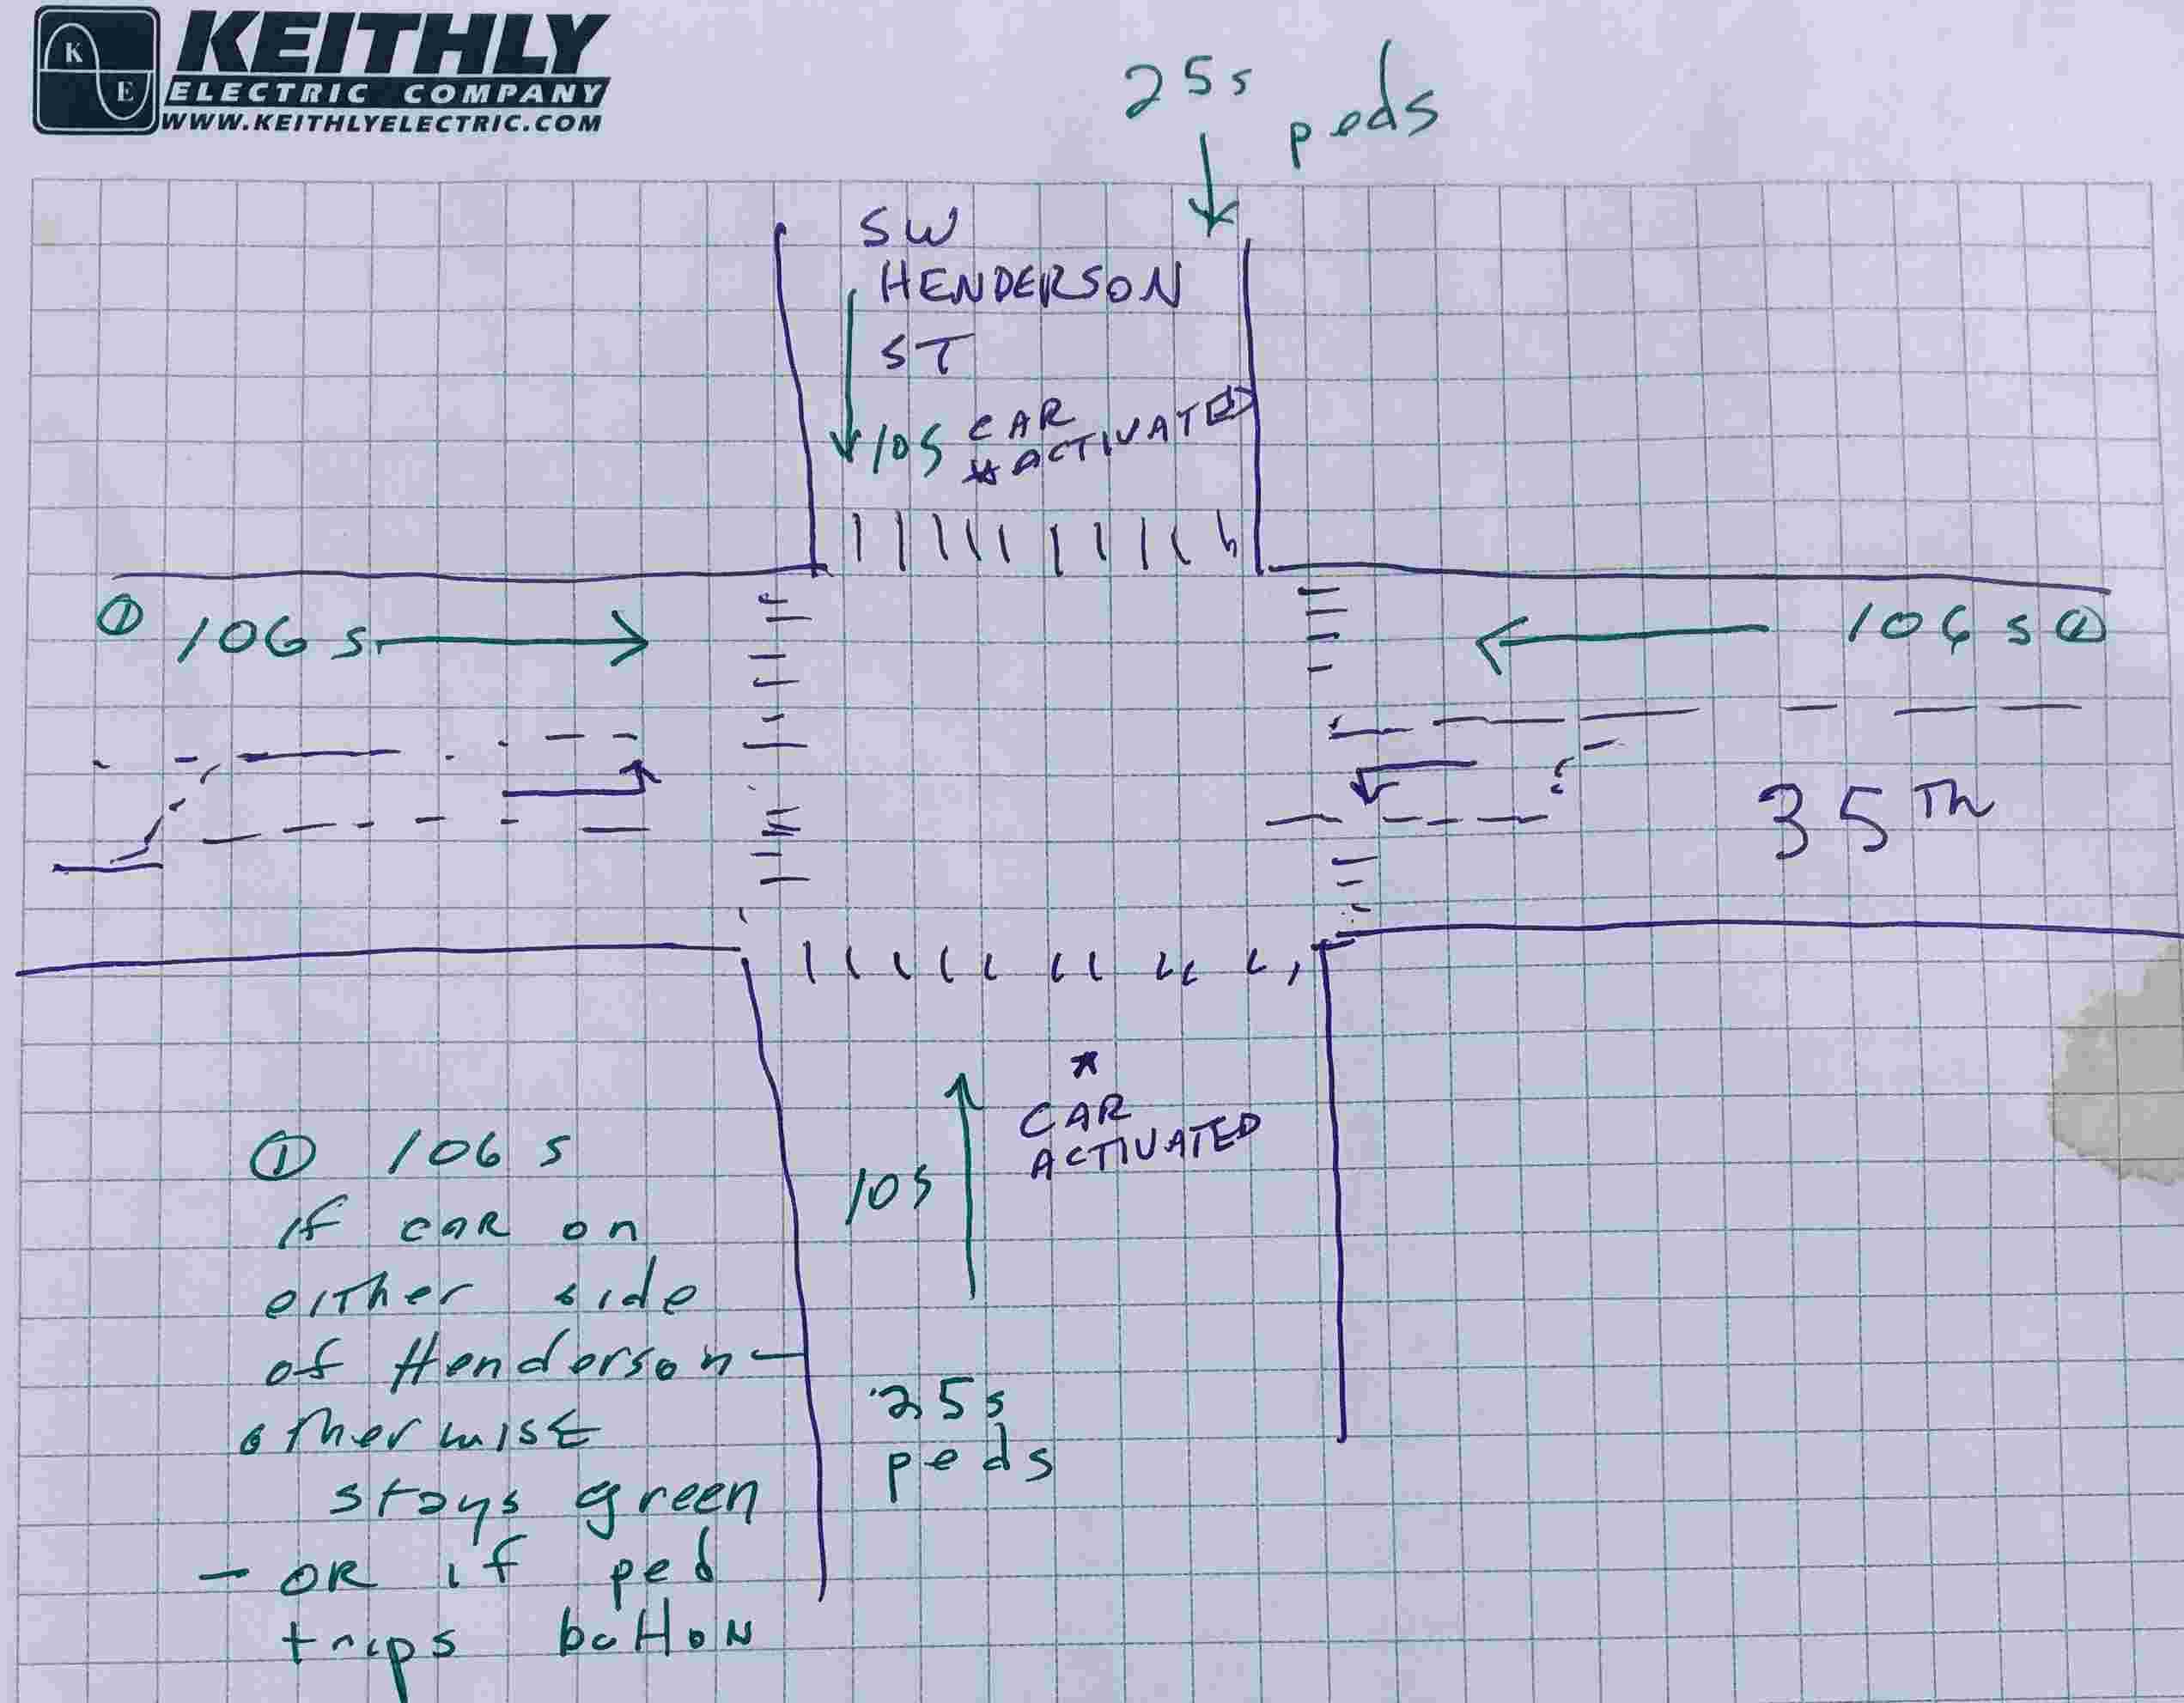 K
E
KEITHLY
ELECTRIC COMPANY
WWW.KEITHLYELECTRIC.COM
25s
peds
SW
HENDERSON
ST
10S CAR
* ACTIVATED
① 106 s
106 s ①
35TH
* 
CAR
ACTIVATED
10S
25s
peds
① 106 s
if CAR on
either side
of Henderson-
otherwise
stays green
- OR if ped
trips button